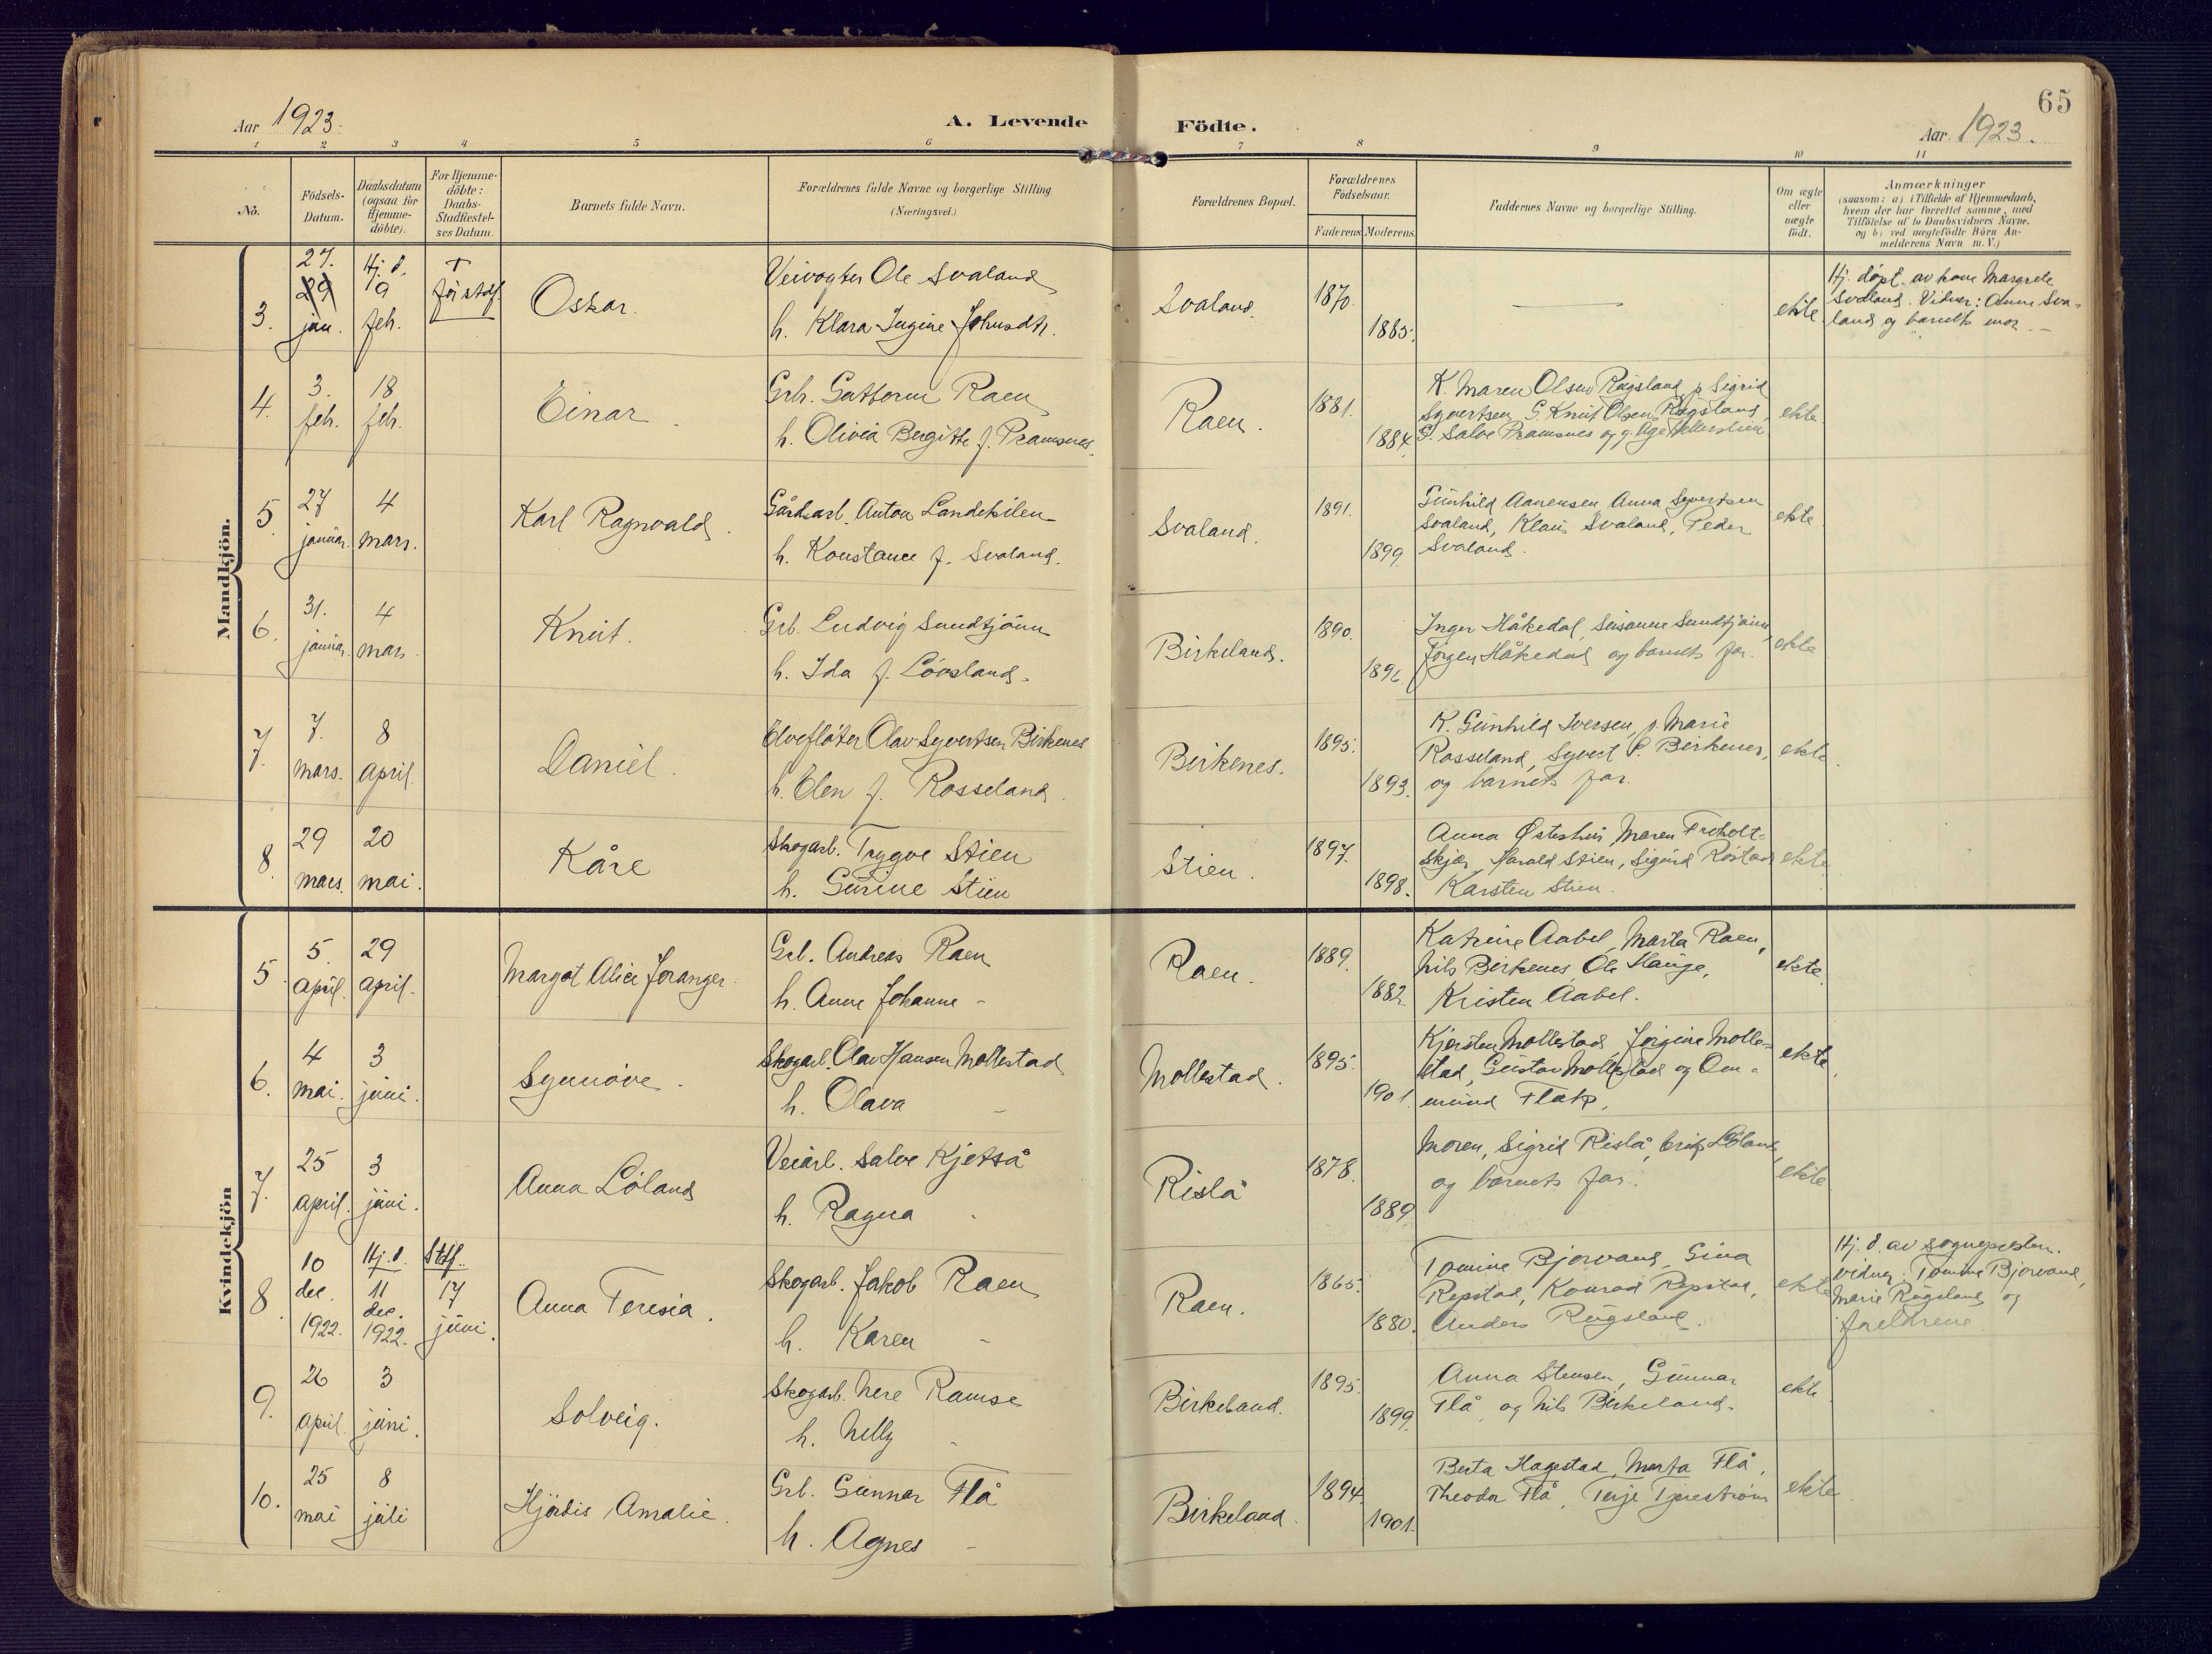 65
Aar 1923.
A. Levende Födte.
Aar. 1923.
1 2 3 4 5 6 7 8 9 10 11
No.
Födsels-
Datum.
Daabsdatum
(ogsaa for
Hjemme-
döbte).
For Hjemme-
döbte:
Daabs-
Stadfæstel-
ses Datum.
Barnets fulde Navn.
Forældrenes fulde Navne og borgerlige Stilling
(Næringsvei.)
Forældrenes Bopæl.
Forældrenes
Födselsaar.
Faderens Moderens
Faddernes Navne og borgerlige Stilling.
Om ægte
eller
uægte
födt.
Anmærkninger
(saasom: a) i Tilfælde af Hjemmedaab,
hvem der har forrettet samme, med
Tilföielse af to Daabsvidners Navne,
og b) ved uægtefödte Börn An-
melderens Navn m. V.)
Mandkjön.
3.
27.
29
jan.
Hj. d.
9
feb.
†
før stdf.
Oskar.
Veivogter Ole Svaland
h. Klara Ingine Johnsdtr.
Svaland.
1870.
1885.
—
ekte
Hj. døpt av kone Margrete
Svaland. Vidner: Anne Sva-
land og barnets mor. —
4.
3.
feb.
18
feb.
Einar.
Grb. Guttorm Raen
h. Olivia Bergitte f. Pramsnes.
Raen.
1881.
1884.
K. Maren Olsen Rugsland, p. Sigrid
Syvertsen G. Knut Olsen Rugsland,
G. Salve Pramsnes og g. Åge
ekte
5
27
januar.
4
mars.
Karl Ragnvald.
Gårdsarb. Anton Landekilen
h. Konstance f. Svaland.
Svaland.
1891.
1899.
Gunhild Aanensen, Anna Syvertsen
Svaland, Klaus Svaland, Peder
Svaland.
ekte
6.
31.
januar.
4
mars
Knut.
Grb. Ludvig Sundtjönn
h. Ida f. Lövsland.
Birkeland.
1890.
1896.
Inger Håkedal, Susanne Sundtjönn,
Jörgen Håkedal og barnets far.
ekte
7.
7.
mars.
8
april
Daniel.
Elvefløter Olav Syvertsen Birkenes
h. Elen f. Rosseland.
Birkenes.
1895.
1893.
K. Gunhild Iversen, p. Marie
Rosseland, Syvert P. Birkenes,
og barnets far.
ekte.
8.
29
mars.
20
mai.
Kåre
Skogarb. Trygve Stien
h. Gurine Stien
Stien.
1897.
1898.
Anna Østerhus, Maren Froholt-
skjær, Harald Stien, Sigurd Rostad
Karsten Stien.
ekte.
Kvindekjön
5.
5.
april.
29
april.
Margot Alice Joranger.
Grb. Andreas Raen
h. Anne Johanne -
Raen.
1889.
1882.
Katrine Aabel, Marta Raen,
Nils Birkenes, Ole Hauge,
Kristen Aabel.
ekte.
6.
4
mai.
3
juni.
Synnöve.
Skogarb. Olav Hansen Mollestad
h. Olava -
Mollestad.
1895.
1901.
Kjersten Mollestad, Jörgine Molle-
stad, Gustav Mollestad og Om-
mund Flak.
ekte.
7.
25
april.
3
juni.
Anna Löland
Veiarb. Salve Kjetså
h. Ragna -
Rislå
1878.
1889.
Moren, Sigrid Rislå, Erik Löland,
og barnets far.
ekte.
8
10
dec.
1922.
Hj. d.
11
dec.
1922.
Stdf.
17
juni.
Anna Teresia.
Skogarb. Jakob Raen
h. Karen -
Raen.
1865.
1880.
Tomine Bjorvand, Gina
Repstad, Konrad Repstad,
Anders Rugsland.
ekte
Hj. d. av sognepresten.
Vidner: Tomine Bjorvand,
Marie Rugsland og
foreldrene
9.
26
april
3
juni.
Solveig.
Skogarb. Nere Ramse
h. Nelly -
Birkeland.
1895.
1899.
Anna Stensen, Gunnar
Flå og Nils Birkeland.
ekte
10.
25
mai
8
juli
Hjördis Amalie.
Grb. Gunnar Flå
h. Agnes -
Birkeland.
1894.
1901.
Berta Hagestad, Marta Flå,
Theodor Flå, Terje Tjereström
ekte.